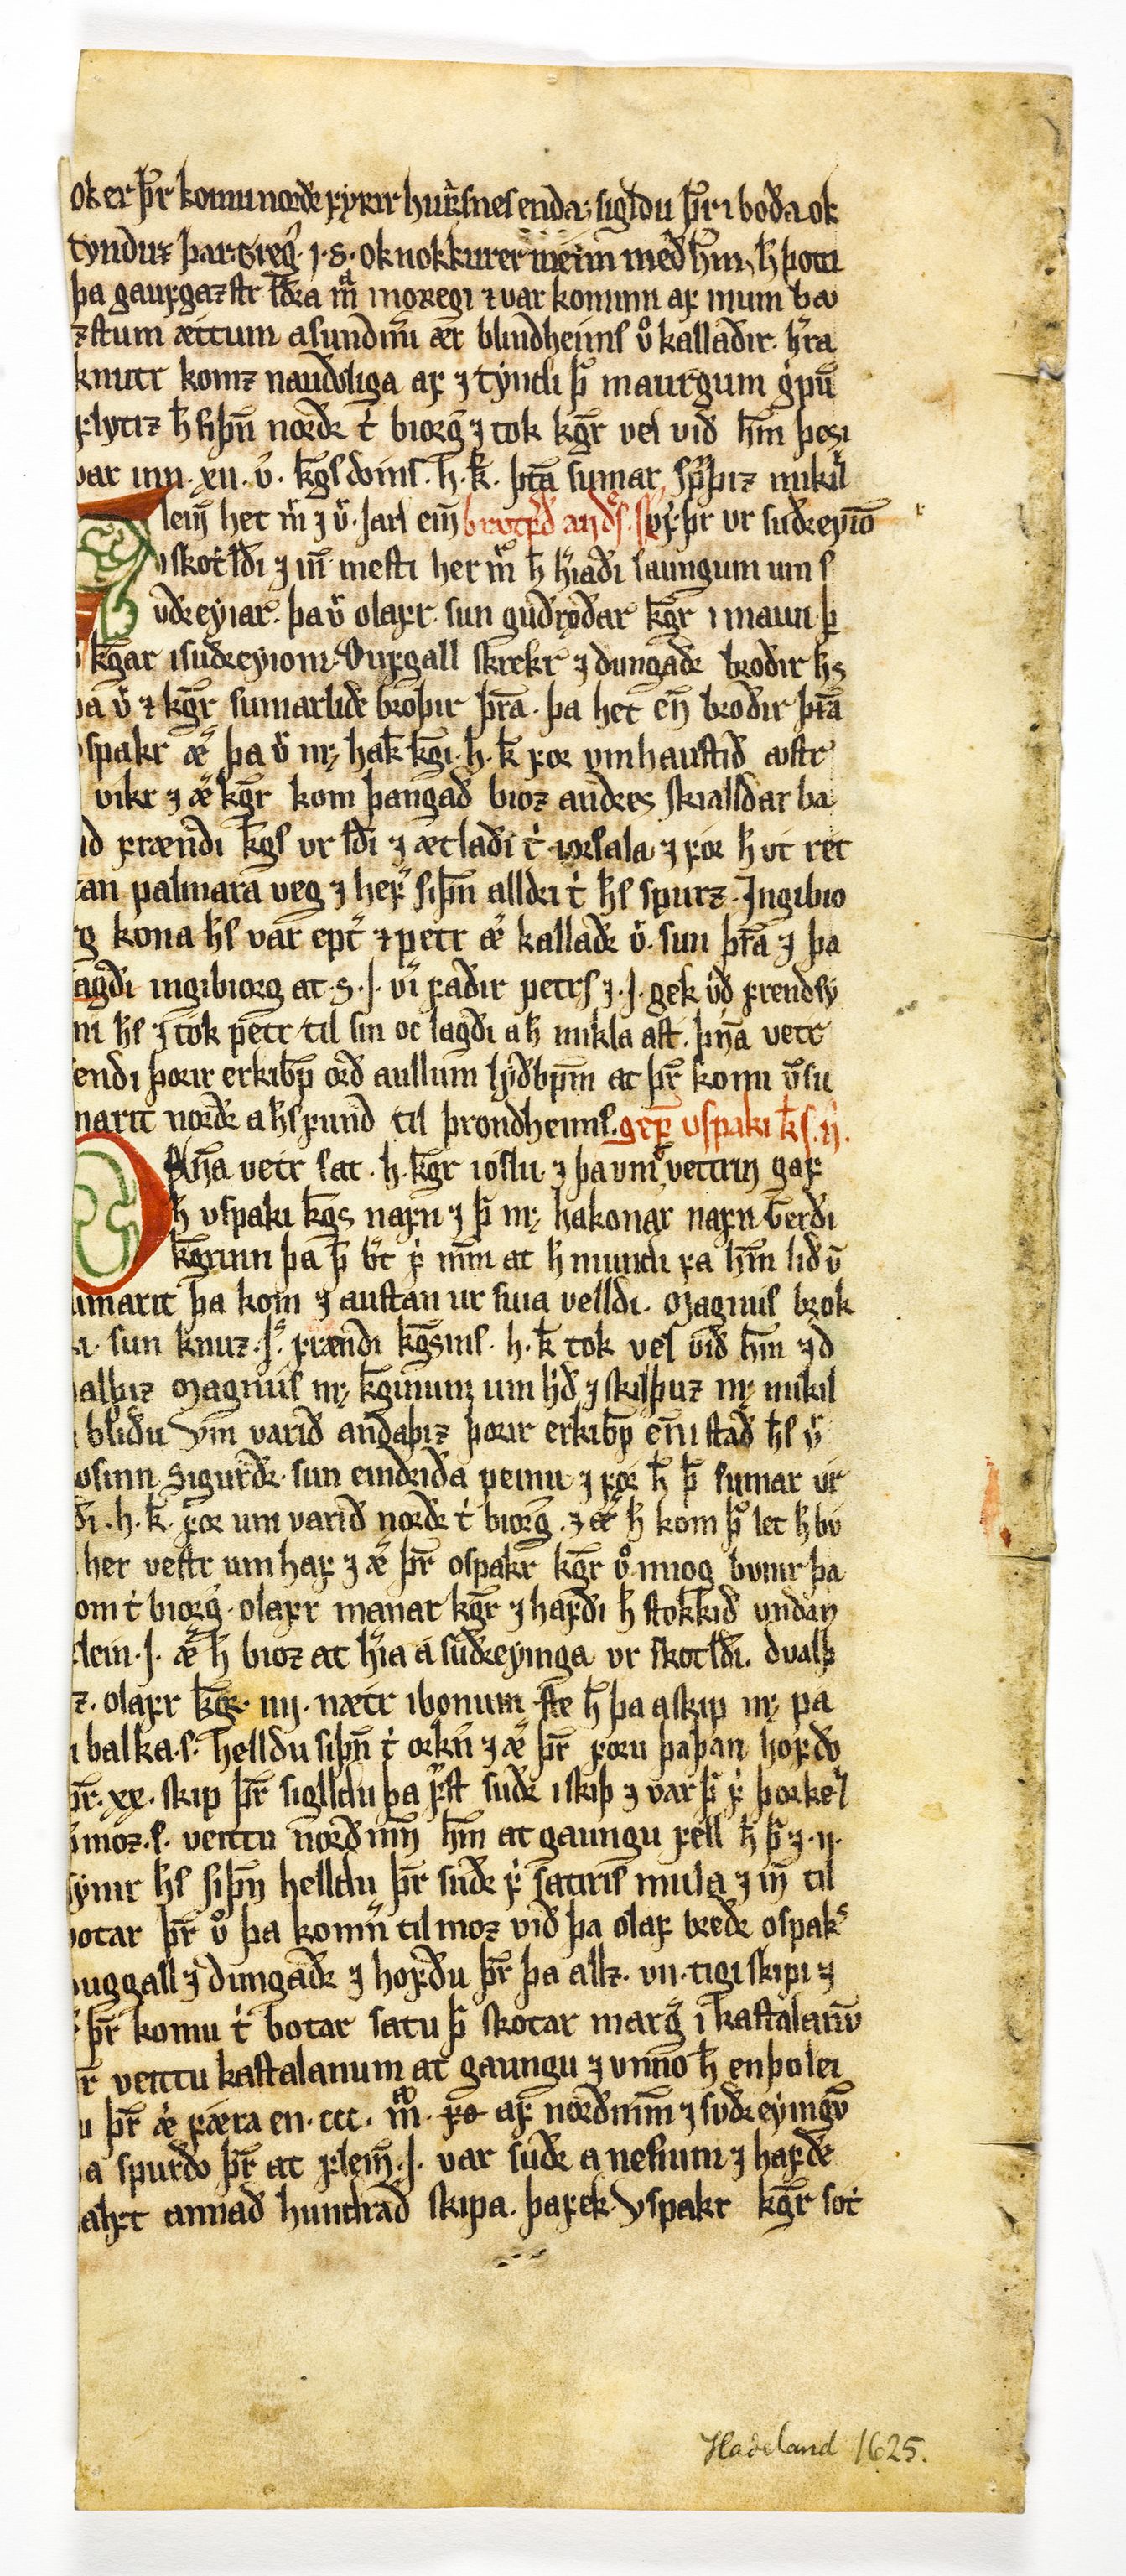 ok er þr̄r komu nordr fyrir hur̄snes enda, sigldu þr̄r i boda ok
tynduz þar. greg. j. s. ok nokkurer menn med hm̄, h̄ þotti
þa gaufgaztr lðra m̄ i noregi ⁊ var kominn af mum bæ
ztum ættum a sundm̄i ær blindheims v̊ kalladir. hr̄a
knutr komz naudvliga af ⁊ tyndi þ̄ maurgum gͥpū
flytiz h̄ siþn̄ nordr t̓ biorg̓ ⁊ tok kgr̄ vel vid hm̄ þesi
var inn .xii. v̓. kgs̄ doms .h. k̄. þta̅ sumar, spͥþiz mikil
lem̄ het m̄ ⁊ v̓. jarl ein̄ brotf̓d and̓s. s. of. þr vr sudreyiō
skotlði ⁊ in̄ mesti her m̄ h̄ h̓iadi laungum um s
udreyiar. þa v̓ olafr. sun gudrødar kgr̄ i maun þ̄
kgar̄ i sudreyiom. Dufgall skrekr ⁊ dungadr brodir hs̄
þa v̓ ⁊ kgr̄ sumarlidr broþir þra̅. þa het en̄ brodir þra̅
spakr æ̓ þa v̓ m; hak̄ kgi̅. h. k̄ for vm haustid æstr
vikr ⁊ æ̓ kgr̄ kom þangad bioz andres skialldar ba
nd frændi kgs̄ vr lði ⁊ ætladi t̓ iorsala ⁊ for h̄ vt ret
tan palmara veg ⁊ hef̓ siþn̄ alldri t̓ hs̄ spurz. Ingibio
rg kona hs̄ var ept̓ ⁊ petr æ̓ kalladr v̓. sun þra̅ ⁊ þa
sagdi ingibiorg at .s. j. v̓i fadir petrs ⁊ .j. gek v̓d frendsy
ni hs̄ ⁊ tok petr til sin oc lagdi a h̄ mikla ast. þn̄a vetr
sendi þorir erkibp̄ ord aullum lydbpm̄ at þr̄ komi v̄ su
marit nordr a hs̄ fund til þrondheims. gef̄ vspaki k̄s. n̄.
Þn̄a vetr sat .h. kgr̄ i oslu ⁊ þa vm̄ vettrin gaf
h̄ vspaki kgs̄ nafn ⁊ þ̄ m; hakonar nafn. Gerdi
kgr̄inn þa þ̄ b̓t f̓ mm̄ at h̄ mundi fa hm̄ lid v̄
sumarit þa kom ⁊ austan ur suia velldi. Magnus brok
a. sun knuz .j. frændi kgs̄ins. h. k̄ tok vel vid hm̄ ⁊ d
ualþiz Magnus m; kgi̅num um hͥd ⁊ skilþuz m; mikil
i blidu Vm varid andaþiz þorir erkibp̄ en̄ i stad hs̄ v̓
kosinn Sigurdr. sun eindrida peinu ⁊ for h̄ þ̄ sumar ur
lði. h. k̄. for um varid nordr t̓ biorg̓. ⁊ æ̓ h̄ kom þͦ let h̄ bv
her vestr um haf ⁊ æ̓ þr̄ ospakr kgr̄ v̊ miog bvnir þa
kom t̓ biorg̓. olafr manar kgr̄ ⁊ hafdi h̄ stokkid vndan
alein .j. æ̓ h̄ bioz at h̓ia a sudreyinga vr skotlði. dvalþ
iz. olafr kgr̄. iiij. nætr i bonum. ste h̄ þa a skip m; pa
li balka.s. helldu siþn̄ t̓ orkn̄ ⁊ æ̓ þr̄ foru þaþan hofdo
þr̄. xx. skip þr̄ siglldu þa fͥst sudr i skiþ ⁊ var þ̄ f̓ þorkel
þormoz.s. veittu nordmn̄ hm̄ at gaungu fell h̄ þ̄ ⁊ .ij.
synir hs̄ siþn̄ helldu þr̄ sudr f̓ satiris mula ⁊ in̄ til
botar þr̄ v̊ þa komn̄ til moz vid þa olaf brædr ospaks
Duggall ⁊ dungadr ⁊ hofdu þr̄ þa allz .viii. tigi skipa ⁊
æ̓ þr̄ komu t̓ botar satu þ̄ skotar marg̓ i kastalanū
þr̄ veittu kastalanum at gaungu ⁊ vnno h̄ en þo let
u þr̄ æ̓ færa en .ccc. m̄. af nordmm̄ ⁊ sudreyingū
þa spurdo þr̄ at flein̄ .j. var sudr a nesium ⁊ hafdi
aflat annad hundrad skipa. þa fek Vspakr kgr̄ sot
Hadeland 1625.